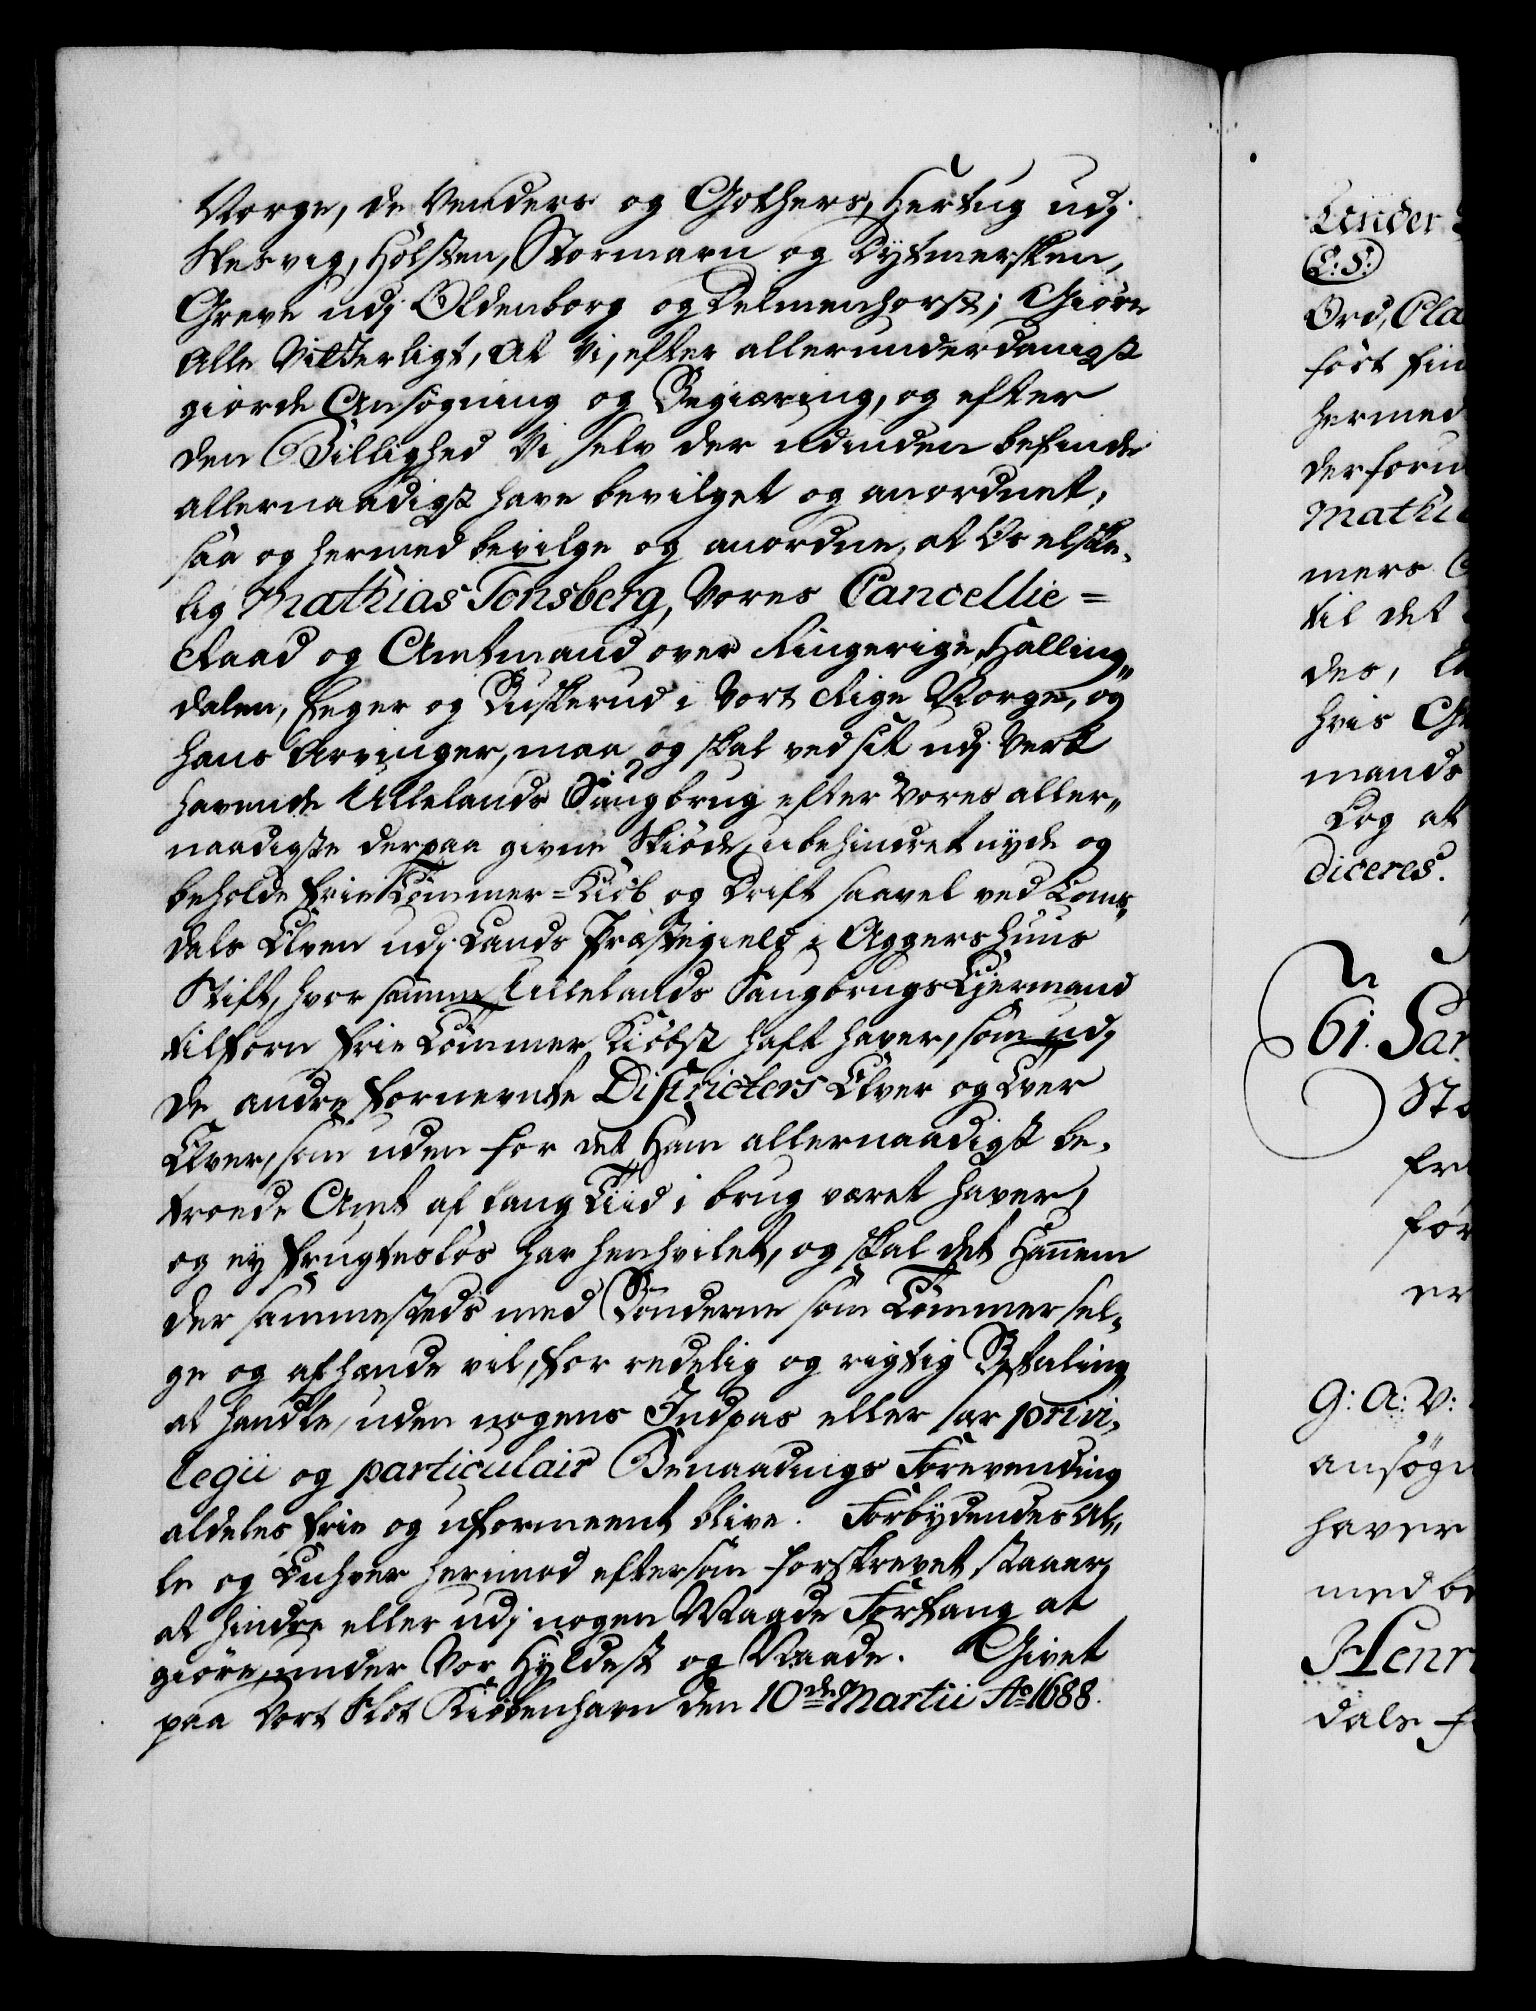 Norge, de Venders og Gothers, Hertug udj
Slesvig, Holsten, Stormarn og Dytmersken,
Greve udj Oldenborg og Delmenhorst; Giöre
Alle Vitterligt, At Vi, efter allerunderdanigst
giorde Ansögning og Begiæring, og efter
den Billighed Vi selv der udinden befinde
allernaadigst have bevilget og anordnet,
saa og hermed bevilge og anordne, at Os elske,
lig Mathias Tonsberg, Vores Cancellie=
Raad og Amtmand over Ringerige, Halling„
dalen, Eeger og Buskerud i Vort Rige Norge, og
hans Arvinger, maa og skal ved sit udj Verk
havende Ullelands Saugbrug efter Vores aller„
naadigste derpaa givne Skiöde, ubehindret nyde og
beholde frie Tömmer=Kiöb og Drift saavel ved Lom̃„
dals Elven udj Lands Præstegield i Aggershuus
Stift, hvor samme Ullelands Saugbrugs Ejermænd
tilforn frie Tömmer Kiöbst haft haver, som udj
de andre fornevnte Districters Elver og Tver
Elver, som uden for det Ham allernaadigst be,
troede Amt af lang Tiid i brug været haver,
og ey frugteslös har henhvilet, og skal det Hannem
der sammesteds med Bönderne som Tömmer sel,
ge og afhænde vil, for redelig og rigtig Betaling
at handle, uden nogens Indpas eller sær privi,
legii og particulair Benaadnings Forevending
aldeles frie og uformeent blive. Forbydendes Al„
le og Enhver herimod eftersom forskrevet staaer,
at hindre eller udj nogen Maade Forfang at
giöre, under Vor Hyldest og Naade. Givet
paa Vort Slot Kiöbenhavn den 10de Martii Ao 1688.
Under
L: S:
Ord,
hermed
til det
des,
hvis
mands
Log at
diceres.
61.
er
G: A: V:
ansøgn
haver
Henr
dals